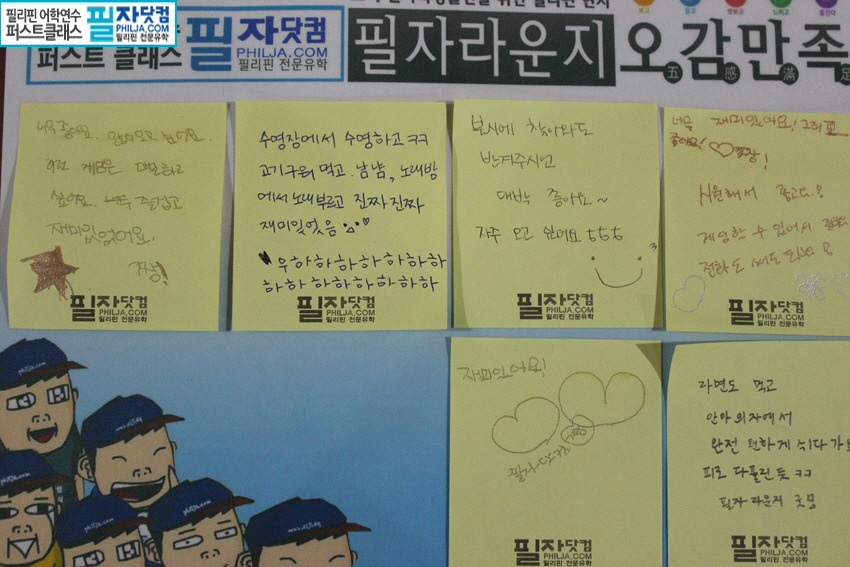 필리핀 어학연수
퍼스트클래스
필자닷컴
PHILJA.COM
필리핀 전문유학
퍼스트 클래스
필자닷컴
PHILJA.COM
필리핀 전문유학
필자라운지
오감만족
五 感 滿 足
너무 좋아요.
싶어요. 너무 즐겁고
재미있었어요.
짱!
필자닷컴
PHILJA.COM
필리핀 전문유학
수영장에서 수영하고 ㅋㅋ
고기구워 먹고 냠냠, 노래방
에서 노래부르고 진짜진짜
재미있었음
우하하하하하하하하
하하하하하하하하하
필자닷컴
PHILJA.COM
필리핀 전문유학
불시에 찾아와도
반겨주시던
대박 좋아요~
자주 오고 싶어요 ㅎㅎㅎ
필자닷컴
PHILJA.COM
필리핀 전문유학
너무 재미있어요! 그리고
좋아요! 짱!
시원해서 좋고요!
게임할 수 있어서 좋아요
전화도 써도 되고요!
필자닷컴
PHILJA.COM
필리핀 전문유학
재미있어요!
필자닷컴
필자닷컴
PHILJA.COM
필리핀 전문유학
라면도 먹고
안마의자에서
완전 편하게 쉬다가
피로 다풀린듯 ㅋㅋ
필자 라운지 굿
필자닷컴
PHILJA.COM
필리핀 전문유학
philja.com
philja.com
philja.com